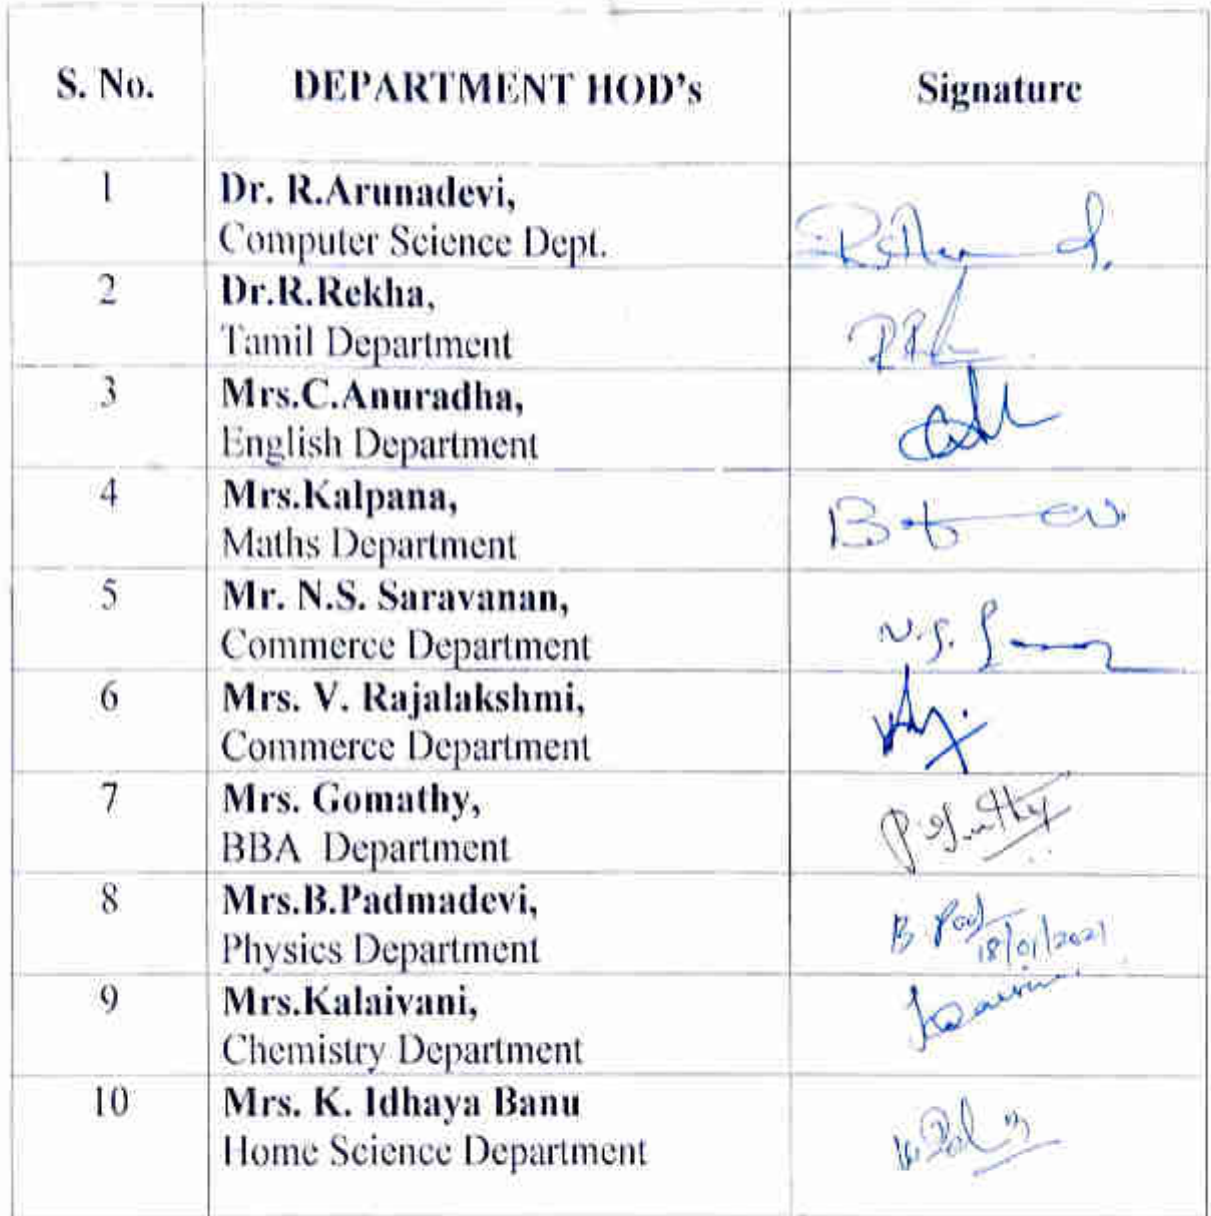 S. No. DEPARTMENT HOD's Signature
1 Dr. R.Arunadevi,
Computer Science Dept.
2 Dr.R.Rekha,
Tamil Department
3 Mrs.C.Anuradha,
English Department
4 Mrs.Kalpana,
Maths Department
5 Mr. N.S. Saravanan,
Commerce Department
N.S.
6 Mrs. V. Rajalakshmi,
Commerce Department
7 Mrs. Gomathy,
BBA Department
8 Mrs.B.Padmadevi,
Physics Department
B. Pad
18/01/2021
9 Mrs.Kalaivani,
Chemistry Department
10 Mrs. K. Idhaya Banu
Home Science Department